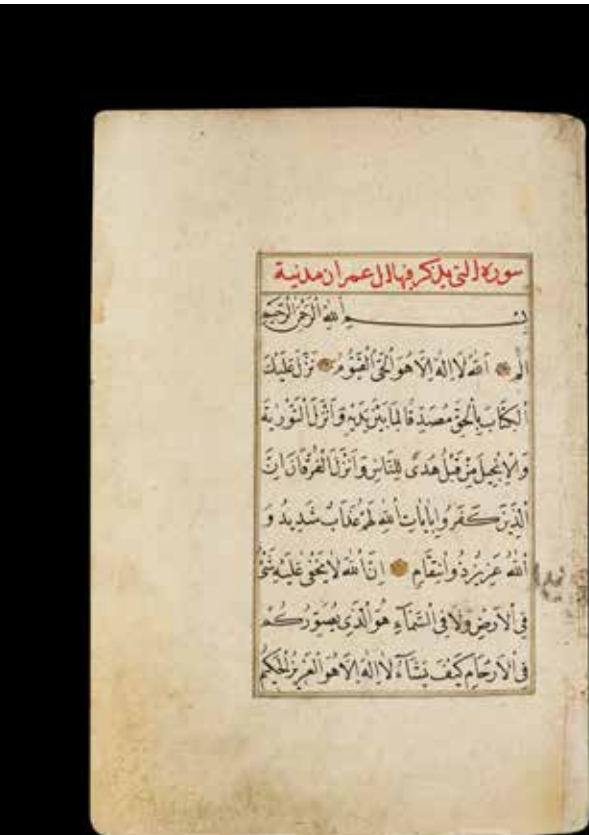 سورة التي يذكر فيها ال عمران مدنية
بِسْمِ اللهِ الرَّحْمٰنِ الرَّحِيمِ
الم اَللهُ لَا اِلٰهَ اِلَّا هُوَ الْحَيُّ الْقَيُّومُ نَزَّلَ عَلَيْكَ
الْكِتَابَ بِالْحَقِّ مُصَدِّقًا لِمَا بَيْنَ يَدَيْهِ وَاَنْزَلَ التَّوْرٰيةَ
وَالْاِنْجِيلَ مِنْ قَبْلُ هُدًى لِلنَّاسِ وَاَنْزَلَ الْفُرْقَانَ اِنَّ
الَّذِينَ كَفَرُوا بِاٰيَاتِ اللهِ لَهُمْ عَذَابٌ شَدِيدٌ وَ
اَللهُ عَزِيزٌ ذُو انْتِقَامٍ اِنَّ اللهَ لَا يَخْفٰى عَلَيْهِ شَيْءٌ
فِي الْاَرْضِ وَلَا فِي السَّمَآءِ هُوَ الَّذِي يُصَوِّرُكُمْ
فِي الْاَرْحَامِ كَيْفَ يَشَآءُ لَا اِلٰهَ اِلَّا هُوَ الْعَزِيزُ الْحَكِيمُ